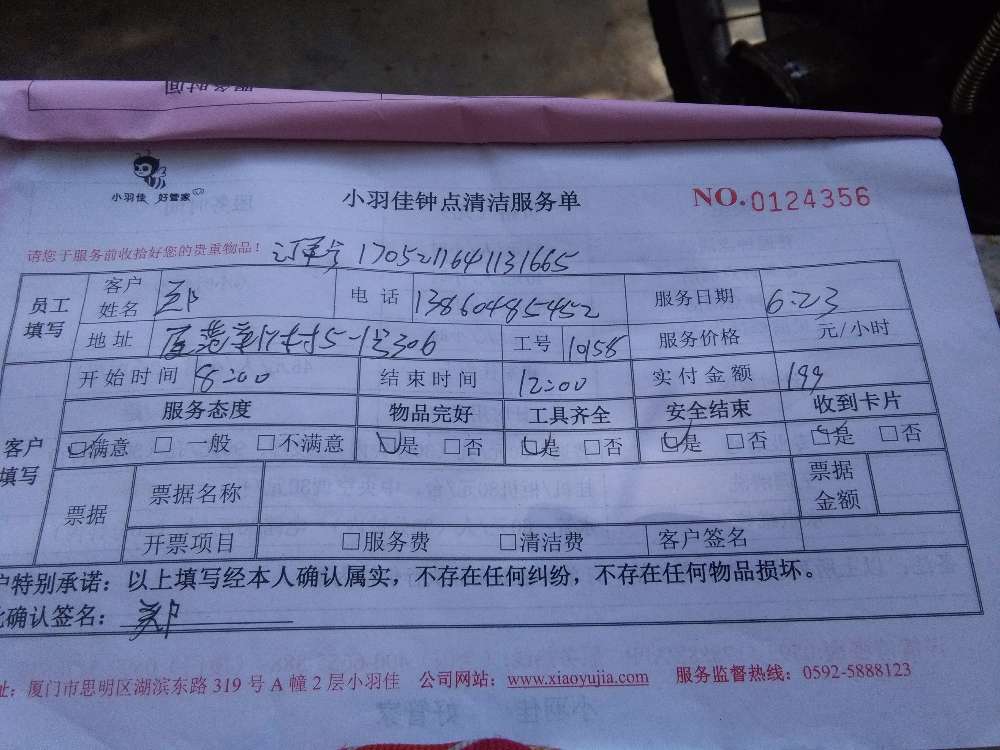 服务时间
小羽佳 好管家
小羽佳钟点清洁服务单
NO.0124356
请您于服务前收拾好您的贵重物品！ 订单号 1705211641131665
员工填写 客户姓名 郑 电话 13860485452 服务日期 6.23
地址 5-1号306 工号 10158 服务价格 元/小时
客户填写 开始时间 8:00 结束时间 12:00 实付金额 199
服务态度 物品完好 工具齐全 安全结束 收到卡片
☑满意 □一般 □不满意 ☑是 □否 ☑是 □否 ☑是 □否 ☑是 □否
票据 票据名称 票据金额
开票项目 □服务费 □清洁费 客户签名
户特别承诺：以上填写经本人确认属实，不存在任何纠纷，不存在任何物品损坏。
此确认签名：郑
址：厦门市思明区湖滨东路 319 号 A 幢 2 层小羽佳 公司网站：www.xiaoyujia.com 服务监督热线：0592-5888123